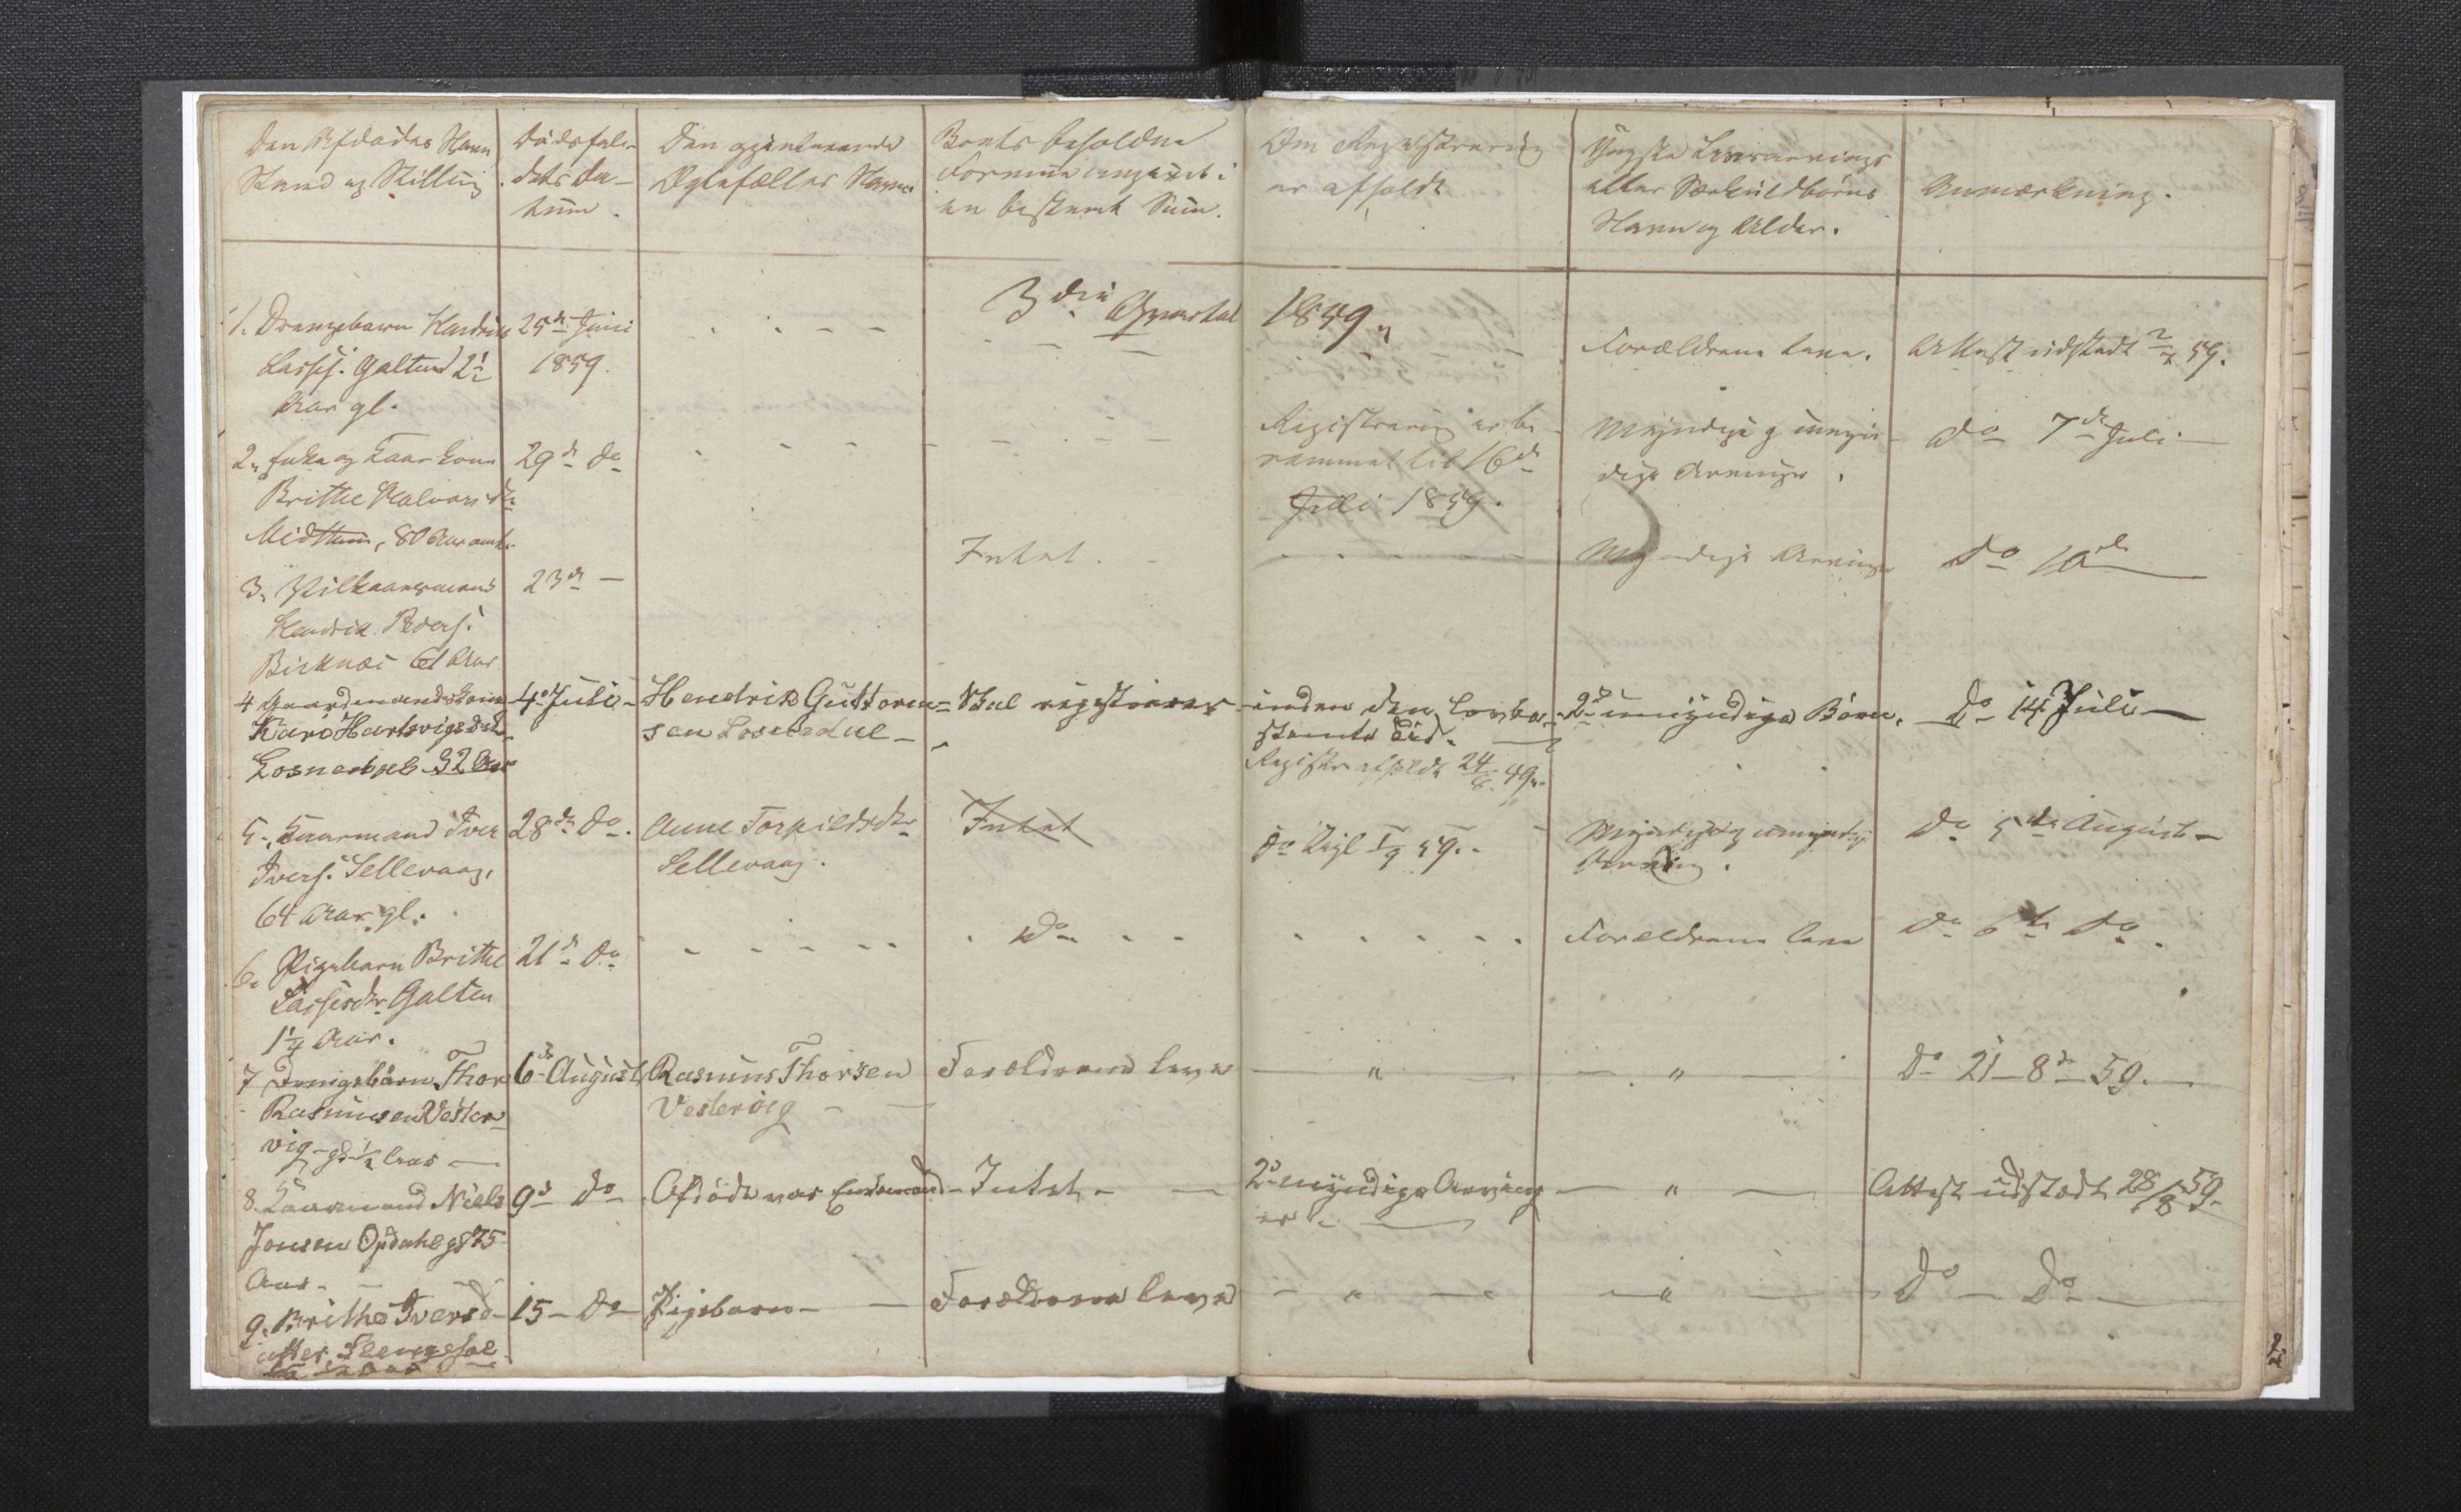 Den Afdødes Navn
Stand og Stilling
Dødsfal-
dets Da-
tum.
Den gjenlevende
Ægtefælles Navn
Boets beholdne
Formue angivet i
en bestemt Sum.
Om Registrering
er afholdt
Yngste Livsarvings
eller Særkuldbørns
Navn og Alder.
Anmærkning.
3die Qvartal 1859 "
1. Drengebarn Hendrik
Lasses. Galten 2½
Aar gl.
25de Juni
1859.
Forældrene leve.
Attest udstedt 2/7 59.
2, Enke og Kaarkone
Brithe Halvorsdtr
Midttun, 80 Aar
29de do
Registrering er be-
rammet til 16de
Juli 1859.
Myndige g umyn-
dige Arvinger.
do 7de Juli
3, Vilkaarsmand
Hendrik Peders.
Birknæs 61 Aar
23de —
Intet.
Myndige Arvinger
do 10de
4 Gaardmandskone
Kari Hartvigsdtr
Losnegael 32 Aar
4de Juli
Hendrik Guttorm-
sen Losnegael
Skal registreres
inden den lovbe-
stemte Tid.
Registr afholdt 24/8 49.
2de umyndige Børn.
do 14 Juli
5, Kaarmand Iver
Ivers. Sellevaag,
64 Aar gl.
28de do.
Anne Torkildsdtr
Sellevaag.
Intet
do 1/9 59.
Myndige g umyndige
Arving.
do 5te August
6, Pigebarn Brithe
Lassesdtr Galten
1¼ Aar.
21de do
do
Forældrene leve
do 6te do.
7 Drengebarn Thor
Rasmusen Vester-
vig gl ½ Aar
6te August
Rasmus Thorsen
Vestervig
Forældrene leve
"
"
do 21 - 8de 59.
8. Kaarmand Niels
Jonsen Opdahl gl 75
Aar
9de do
Afdøde var Enkemand
Intet
2de myndige Arving
er
"
Attest udstedt 28/8 59
9. Brithe Iversd-
atter
15 - do
Pigebarn
Forældrene leve
"
"
do — do